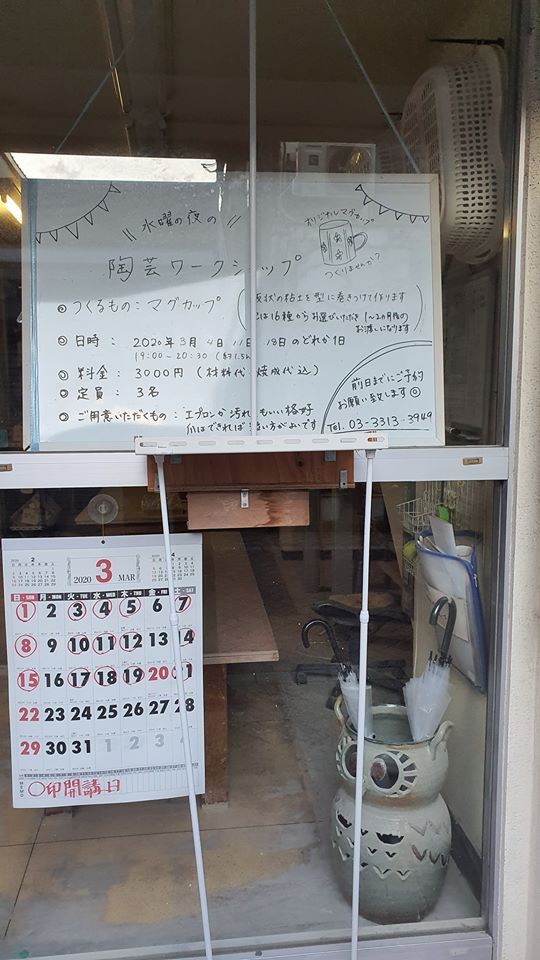 水曜の夜の
陶芸ワークショップ
オリジナルマグカップ
つくりませんか?
つくるもの:マグカップ
板状の粘土を型に巻きつけて作ります
は16種からお選びいただき 1~2ヶ月後の
お渡しになります
日時: 2020年3月4日 11日 18日のどれか1日
19:00~20:30
料金: 3000円 (材料代・焼成代込)
定員: 3名
ご用意いただくもの:エプロンか汚れ もいい格好
はできれば 方がよいです
前日までにご予約
お願い致します
TEL. 03-3313-3949
2020 3 MAR
日・SUN 月・MON 火・TUE 水・WED 木・THU 金・FRI 土・SAT
1 2 3 4 5 6 7
8 9 10 11 12 13 14
15 16 17 18 19 20 21
22 23 24 25 26 27 28
29 30 31 1 2 3
MEMO
○印開講日